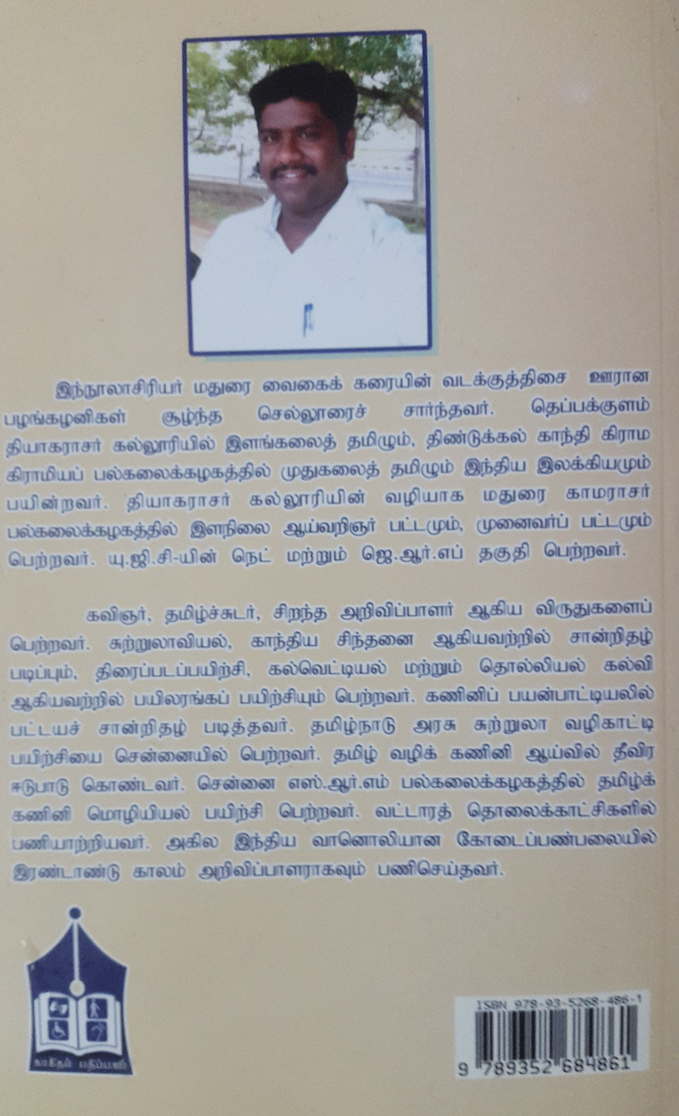 இந்நூலாசிரியர் மதுரை வைகைக் கரையின் வடக்குத்திசை ஊரான
பழங்கழனிகள் சூழ்ந்த செல்லூரைச் சார்ந்தவர். தெப்பக்குளம்
தியாகராசர் கல்லூரியில் இளங்கலைத் தமிழும், திண்டுக்கல் காந்தி கிராம
கிராமியப் பல்கலைக்கழகத்தில் முதுகலைத் தமிழும் இந்திய இலக்கியமும்
பயின்றவர். தியாகராசர் கல்லூரியின் வழியாக மதுரை காமராசர்
பல்கலைக்கழகத்தில் இளநிலை ஆய்வறிஞர் பட்டமும், முனைவர்ப் பட்டமும்
பெற்றவர். யு.ஜி.சி-யின் நெட் மற்றும் ஜெ.ஆர்.எப் தகுதி பெற்றவர்.
கவிஞர், தமிழ்ச்சுடர், சிறந்த அறிவிப்பாளர் ஆகிய விருதுகளைப்
பெற்றவர். சுற்றுலாவியல், காந்திய சிந்தனை ஆகியவற்றில் சான்றிதழ்
படிப்பும், திரைப்படப்பயிற்சி, கல்வெட்டியல் மற்றும் தொல்லியல் கல்வி
ஆகியவற்றில் பயிலரங்கப் பயிற்சியும் பெற்றவர். கணினிப் பயன்பாட்டியலில்
பட்டயச் சான்றிதழ் படித்தவர். தமிழ்நாடு அரசு சுற்றுலா வழிகாட்டி
பயிற்சியை சென்னையில் பெற்றவர். தமிழ் வழிக் கணினி ஆய்வில் தீவிர
ஈடுபாடு கொண்டவர். சென்னை எஸ்.ஆர்.எம் பல்கலைக்கழகத்தில் தமிழ்க்
கணினி மொழியியல் பயிற்சி பெற்றவர். வட்டாரத் தொலைக்காட்சிகளில்
பணியாற்றியவர். அகில இந்திய வானொலியான கோடைப்பண்பலையில்
இரண்டாண்டு காலம் அறிவிப்பாளராகவும் பணிசெய்தவர்.
காகிதம் பதிப்பகம்
ISBN 978-93-5268-486-1
9 789352 684861